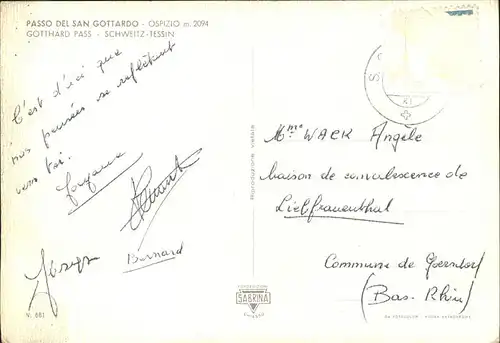 PASSO DEL SAN GOTTARDO - OSPIZIO m. 2094
GOTTHARD PASS - SCHWEITZ-TESSIN
C'est d'ici que
nos pensées se reflètent
vers toi.
Bernard
Joseph
V. 681
Riproduzione vietata
SABRINA
Mme WACK Angèle
Maison de convalescence de
Liebfrauenthal
Commune de Goersdorf
(Bas-Rhin)